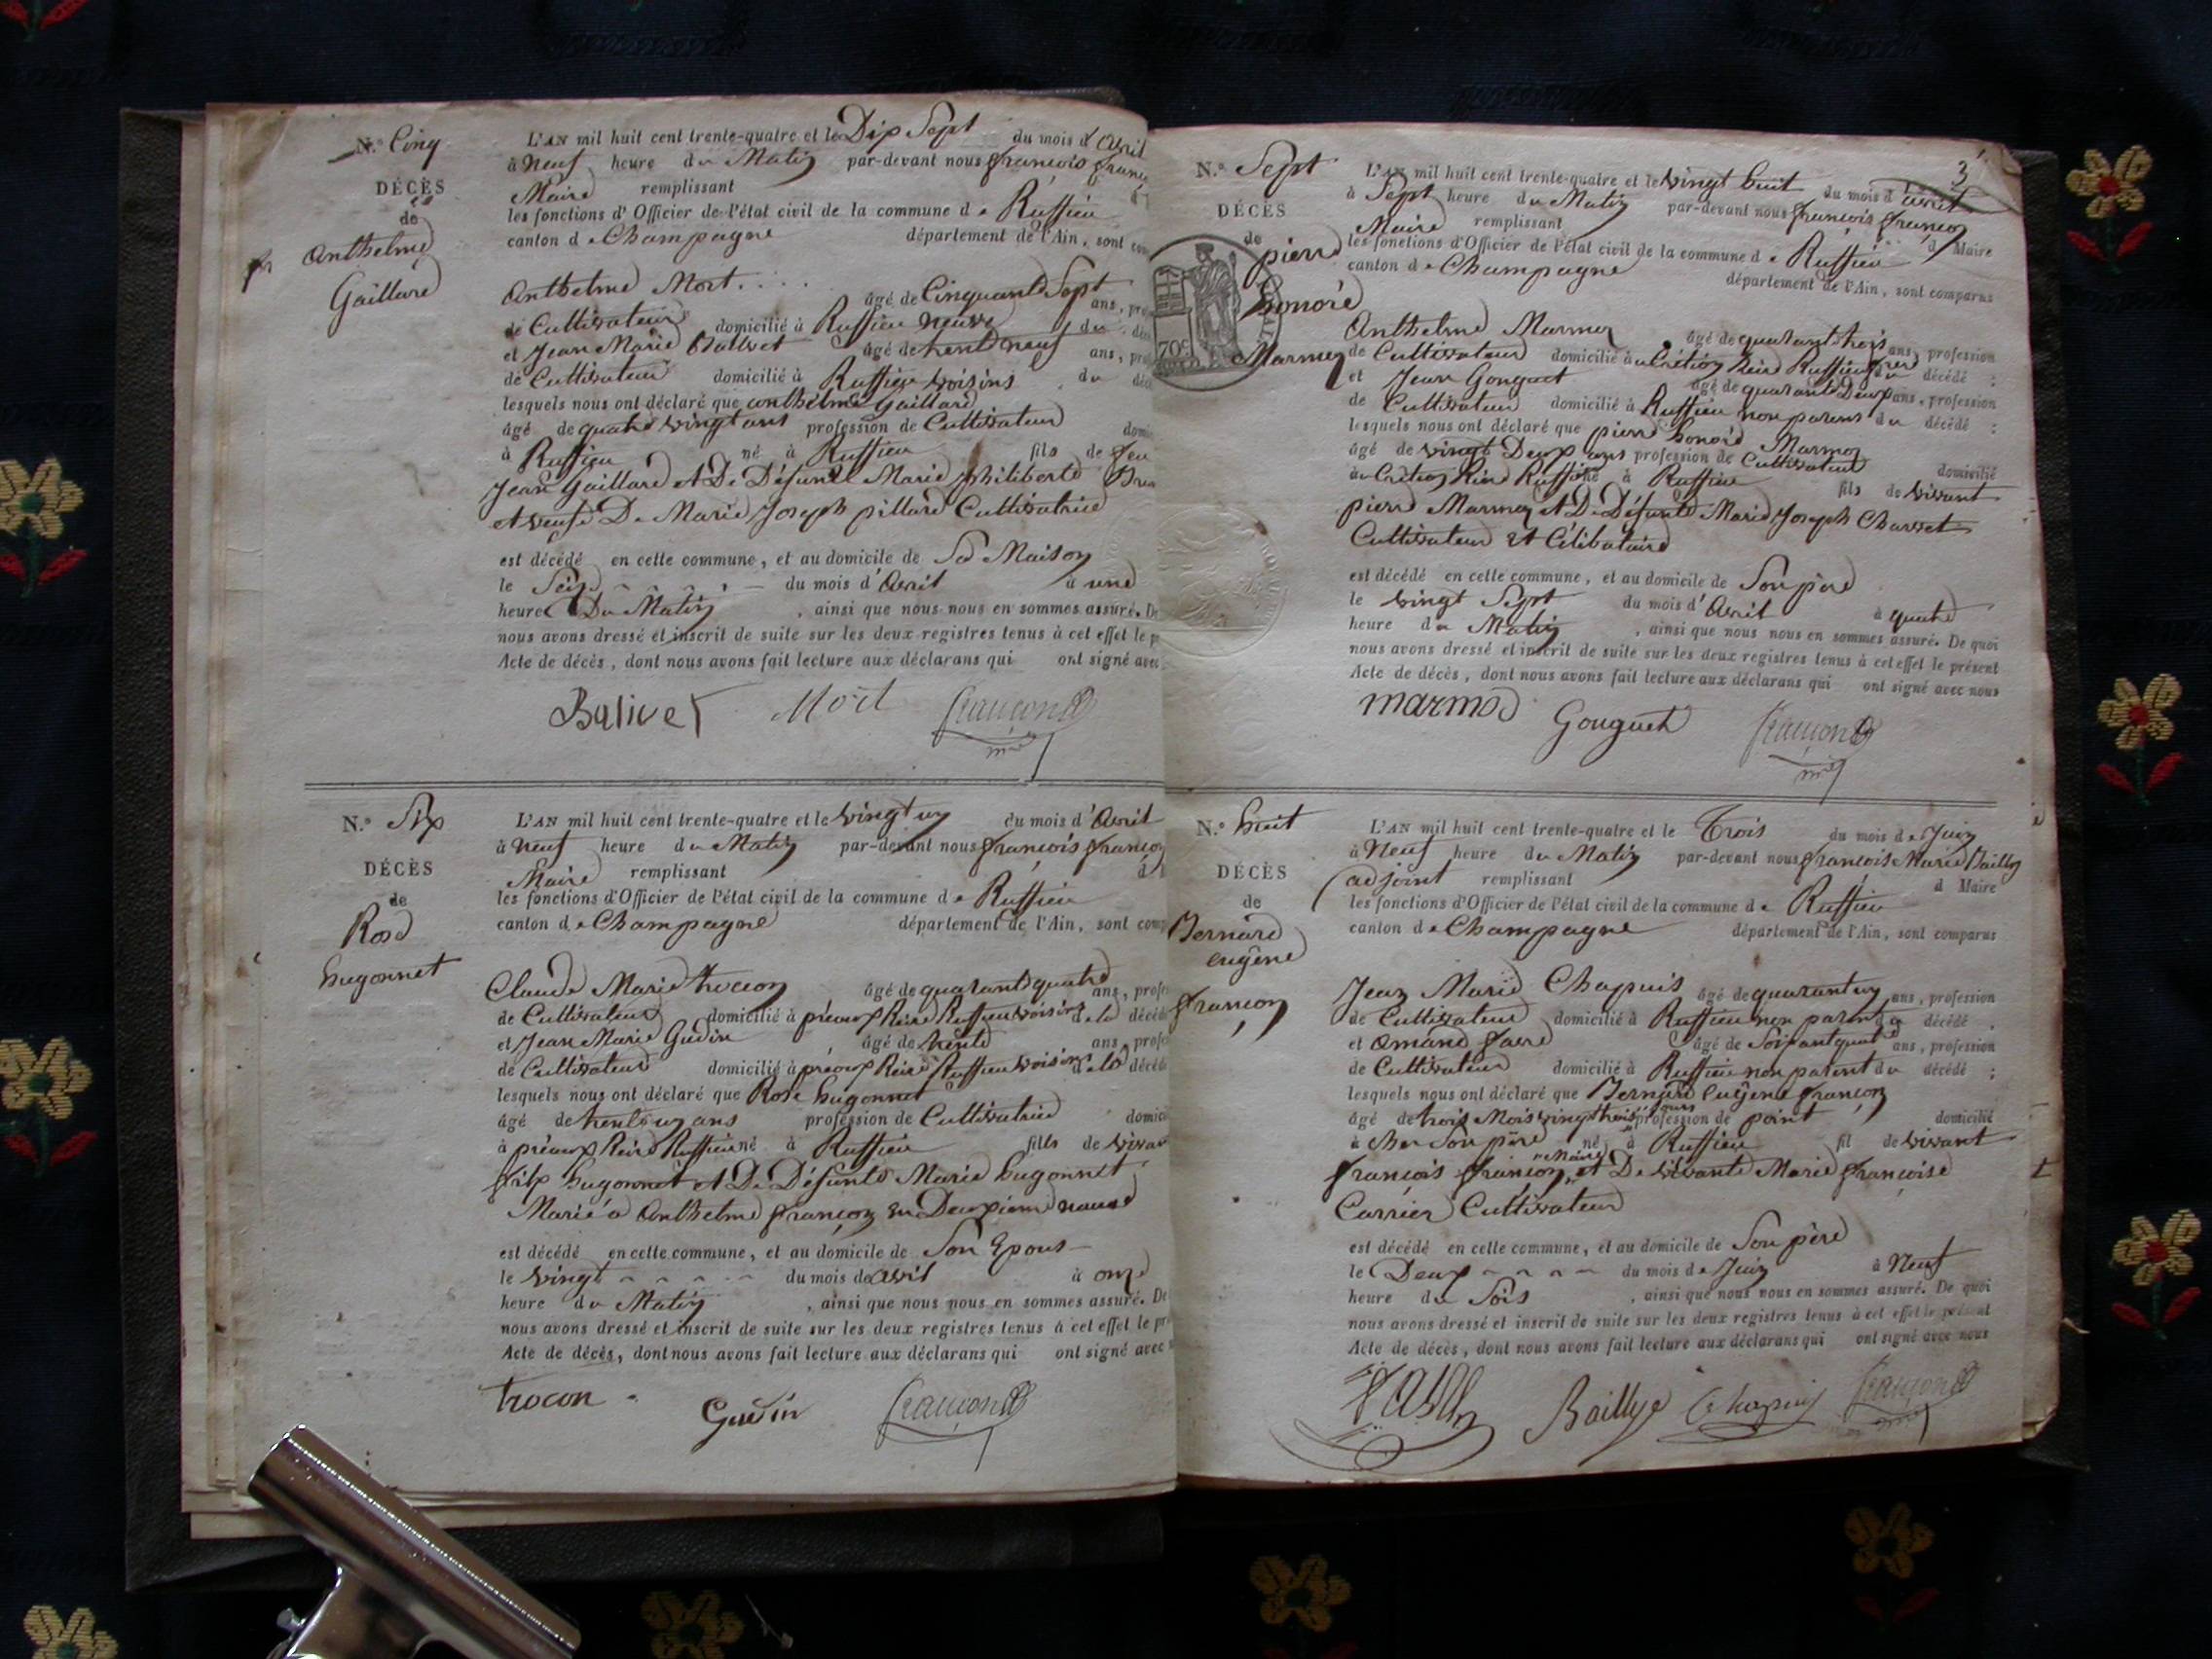 N.° Cinq
DÉCÈS
de
Anthelme
Gaillard
L'AN mil huit cent trente-quatre et le Dix Sept du mois d'Avril
à Neuf heure du Matin par-devant nous françois
Maire remplissant
les fonctions d'Officier de l'état civil de la commune de Ruffieu
canton de Champagne département de l'Ain, sont
Anthelme Mort âgé de Cinquante Sept ans,
de Cultivateur domicilié à Ruffieu neveu du
et Jean Marie Ballivet âgé de trente neuf ans,
de Cultivateur domicilié à Ruffieu voisins du
lesquels nous ont déclaré que anthelme Gaillard
âgé de quatre vingt ans profession de Cultivateur
à Ruffieu né à Ruffieu fils de feu
Jean Gaillard et De Défunte Marie philiberte
et veuf De Marie Joseph pillard Cultivatrice
est décédé en cette commune, et au domicile de Sa Maison
le Seize du mois d'Avril à une
heure Du Matin, ainsi que nous nous en sommes assuré. De
nous avons dressé et inscrit de suite sur les deux registres tenus à cet effet le
Acte de décès, dont nous avons fait lecture aux déclarans qui ont signé avec
Balivet Mort françon
N.° Six
DÉCÈS
de
Rose
hugonnet
L'AN mil huit cent trente-quatre et le vingt un du mois d'Avril
à Neuf heure du Matin par-devant nous françois françon
Maire remplissant
les fonctions d'Officier de l'état civil de la commune de Ruffieu
canton de Champagne département de l'Ain, sont
Claude Marie trocon âgé de quarante quatre ans,
de Cultivateur domicilié à préoux Rière Ruffieu voisins de la
et Jean Marie Gudin âgé de trente ans,
de Cultivateur domicilié à préoux Rière Ruffieu voisins de la
lesquels nous ont déclaré que Rose hugonnet
âgé de trente un ans profession de Cultivatrice
à préoux Rière Ruffieu né à Ruffieu fille de vivant
félix hugonnet et De Défunte Marie hugonnet
Marié a Anthelme françon en Deuxieme
est décédé en cette commune, et au domicile de Son Epous
le vingt du mois de avril à onze
heure du Matin, ainsi que nous nous en sommes assuré. De
nous avons dressé et inscrit de suite sur les deux registres tenus à cet effet le
Acte de décès, dont nous avons fait lecture aux déclarans qui ont signé avec
trocon Gudin françon
3
N.° Sept
DÉCÈS
de
pierre
honoré
Marmoz
70c
L'AN mil huit cent trente-quatre et le vingt huit du mois d'avril
à Sept heure du Matin par-devant nous françois françon
Maire remplissant d Maire
les fonctions d'Officier de l'état civil de la commune de Ruffieu
canton de Champagne département de l'Ain, sont comparus
Anthelme Marmoz âgé de quarante trois ans, profession
de Cultivateur domicilié au Crétion Rière Ruffieu frère du décédé ;
et Jean Gonguet âgé de quarante Deux ans, profession
de Cultivateur domicilié à Ruffieu non parens du décédé ;
lesquels nous ont déclaré que pierre honoré Marmoz
âgé de vingt Deux ans profession de Cultivateur domicilié
au Crétion Rière Ruffieu né à Ruffieu fils de vivant
pierre Marmoz et De Défunte Marie Joseph Charvet
Cultivateur et Célibataire
est décédé en cette commune, et au domicile de Son père
le vingt Sept du mois d'Avril à quatre
heure du Matin, ainsi que nous nous en sommes assuré. De quoi
nous avons dressé et inscrit de suite sur les deux registres tenus à cet effet le présent
Acte de décès, dont nous avons fait lecture aux déclarans qui ont signé avec nous
marmoz Gonguet françon
N.° huit
DÉCÈS
de
Bernard
eugêne
françon
L'AN mil huit cent trente-quatre et le Trois du mois de Juin
à Neuf heure du Matin par-devant nous françois Marie Bailly
adjoint remplissant d Maire
les fonctions d'Officier de l'état civil de la commune de Ruffieu
canton de Champagne département de l'Ain, sont comparus
Jean Marie Chapuis âgé de quarante un ans, profession
de Cultivateur domicilié à Ruffieu non parent du décédé,
et amand favre âgé de soixante quatre ans, profession
de Cultivateur domicilié à Ruffieu non parent du décédé ;
lesquels nous ont déclaré que Bernard Eugêne françon
âgé de trois Mois vingt trois jours profession de point domicilié
à chez Son père né à Ruffieu fil de vivant
françois françon, Maire, et De vivante Marie françoise
Carrier Cultivateur
est décédé en cette commune, et au domicile de Son père
le Deux du mois de Juin à Neuf
heure du Soir, ainsi que nous nous en sommes assuré. De quoi
nous avons dressé et inscrit de suite sur les deux registres tenus à cet effet le présent
Acte de décès, dont nous avons fait lecture aux déclarans qui ont signé avec nous
Bailly Chapuis françon